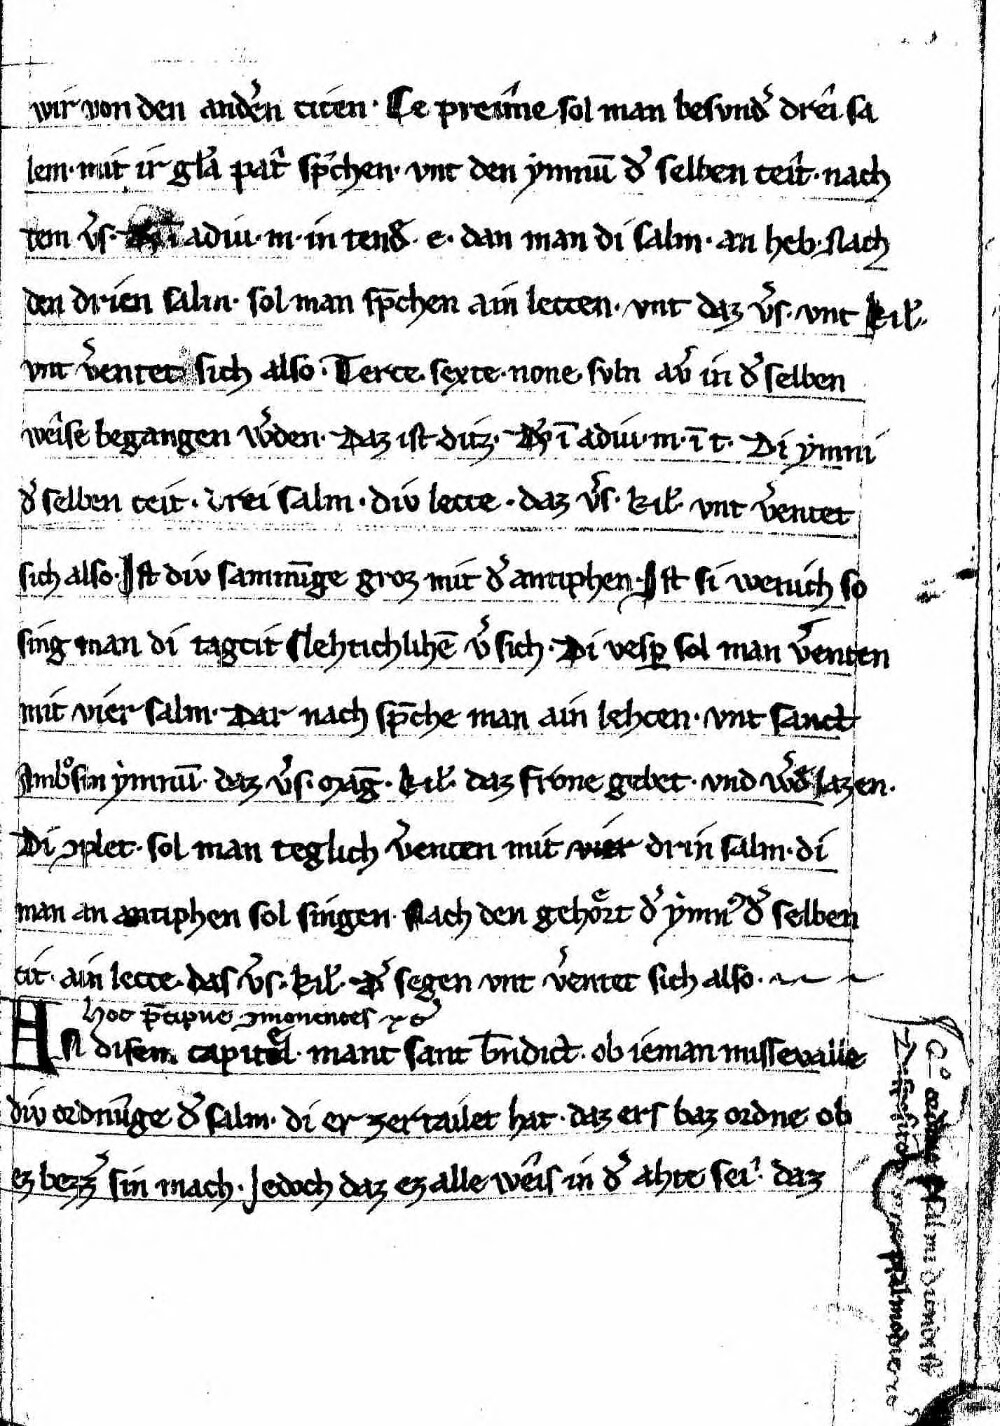 wir von den anďn citen · Ce preîme sol man besvnď drêi sa
lem · mit ir gła pat̾ sp̄chen · vnt den ẏmnū ď selben ceit · nach
tem v̾s · D̄s ī adiu · m · in tenď · e · dan man di salm · an heb · Nach
den drien salm · sol man sp̄chen ain leccen · vnt daz v̾s · vnt kił ·
vnt v̾entet sich also · Terce · sexte · none svln av̾ in ď selben
wêise begangen w̾den · Daz ist ditz · D̄s ī adiu · m · ī t · Di ẏmni
ď selben ceit · drei salm · div lecce · daz v̾s · kił · vnt v̾entet
sich also · Ist div samnūge groz mit ď antiphen · Ist si wenich so
sing man di tagcit slehtichlihē v̾ sich · Di vesꝑ sol man v̾enten
mit vier salm · Dar nach sp̄che man ain lehcen · vnt sanct
Ambͦsin ẏmnū · daz v̾s · maḡ · kił · daz frône gebet · vnd w̾ď lazen ·
Di ꝯplet · sol man teglich v̾enten mit vier drin salm · di
man an antiphen sol singen · Nach den gehoͤrt ď ẏmnꝰ ď selben
cit · ain lecce · das v̾s · kił · D̾ segen vnt v̾entet sich also ·
hoc p̄cipue ꝯmonentes
An disem capitͤel · mant sant b̄ndict · ob ieman missevalle
div ordnūge ď salm · di er zertailet hat · daz ers baz ordne ob
ez bezz̾ sin mach · Jedoch daz ez alle wêis in ď ahte sei · daz